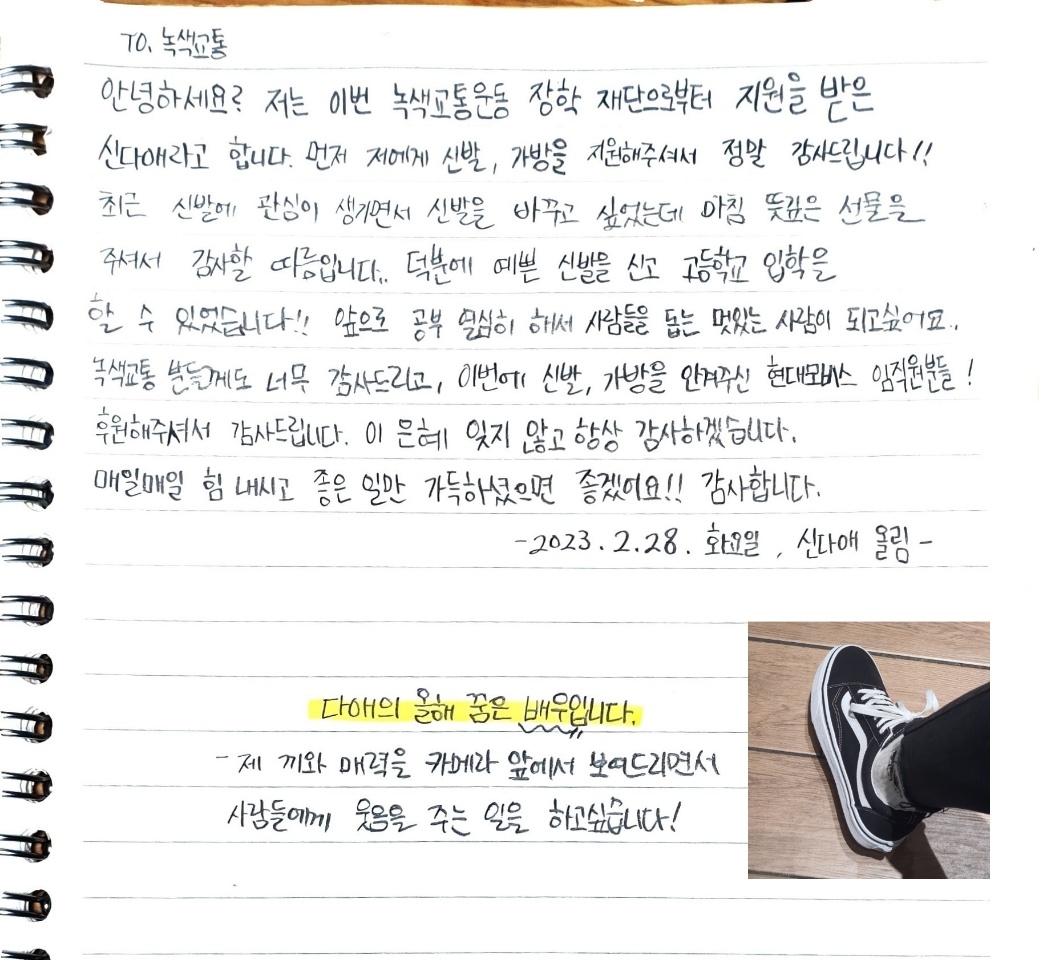 TO. 녹색교통
안녕하세요? 저는 이번 녹색교통운동 장학 재단으로부터 지원을 받은
신다애라고 합니다. 먼저 저에게 신발, 가방을 지원해주셔서 정말 감사드립니다!!
최근 신발에 관심이 생기면서 신발을 바꾸고 싶었는데 마침 뜻깊은 선물을
주셔서 감사할 따름입니다.. 덕분에 예쁜 신발을 신고 고등학교 입학을
할 수 있었습니다!! 앞으로 공부 열심히 해서 사람들을 돕는 멋있는 사람이 되고싶어요..
녹색교통 분들께도 너무 감사드리고, 이번에 신발, 가방을 안겨주신 현대모비스 임직원분들!
후원해주셔서 감사드립니다. 이 은혜 잊지 않고 항상 감사하겠습니다.
매일매일 힘 내시고 좋은 일만 가득하셨으면 좋겠어요!! 감사합니다.
-2023.2.28. 화요일, 신다애 올림-
다애의 올해 꿈은 배우입니다.
- 제 끼와 매력을 카메라 앞에서 보여드리면서
사람들에게 웃음을 주는 일을 하고싶습니다!